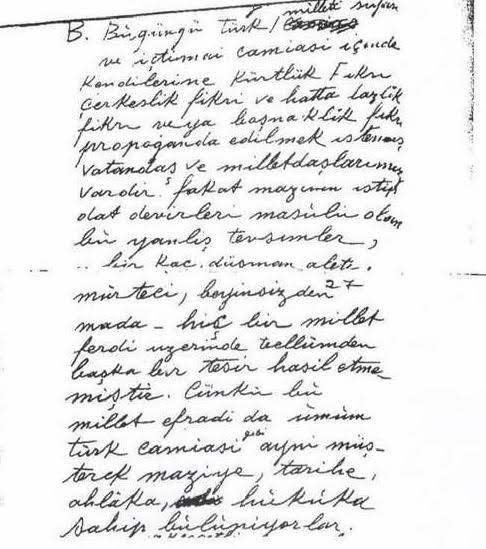 milleti siyasi
B. Bugüngü türk /
ve içtimai camiasi içinde
Kendilerine Kürtlük Fikri
Çerkeslik fikri ve hatta lazlik
fikri veya boşnaklik fikri
propoganda edilmek istenmiş
vatandaş ve milletdaşlarımız
vardir. fakat mazinin istip
dat devirleri masülü olan
bu yanliş tevsimler,
bir Kaç düşman aleti.
mürteci, beyinsizden
mada - hiç bir millet
ferdi uzerinde teellümden
başka bir tesir hasil etme
miştir. Çünkü bu
millet efradi da ümüm
türk camiasi gibi ayni müş-
terek maziye, tarihe,
ahlâka, hükuka
sahip bülünüyorlar.